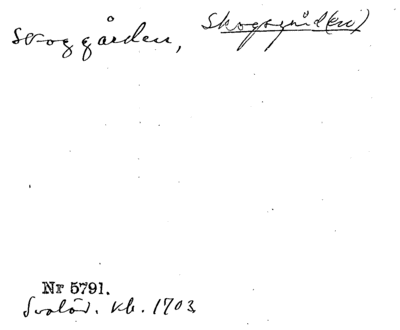 Skoggården, Skogsgård(en)
Nr 5791.
Svalöv. kb. 1703